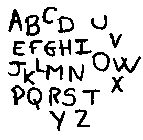 ABCD U
EFGHI V
JKLMN OW
PQRST X
YZ